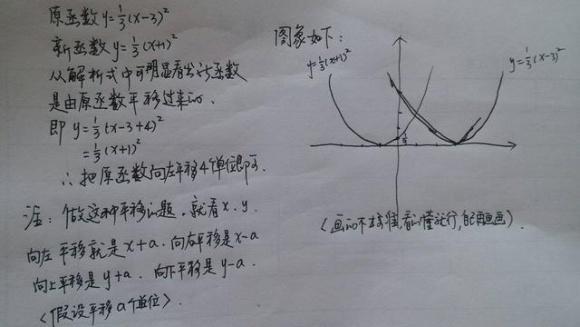 原函数 y=⅓(x-3)²
新函数 y=⅓(x+1)²
从解析式中可明显看出新函数
是由原函数平移过来的.
即 y=⅓(x-3+4)²
=⅓(x+1)²
∴把原函数向左平移4个单位即可.
注: 做这种平移的题, 就看x.y.
向左平移就是x+a. 向右平移是x-a
向上平移是y+a. 向下平移是y-a.
<假设平移a个单位>.
图象如下:
y=⅓(x+1)²
y=⅓(x-3)²
(画的不太好, 看的懂就行, 自己再画画).